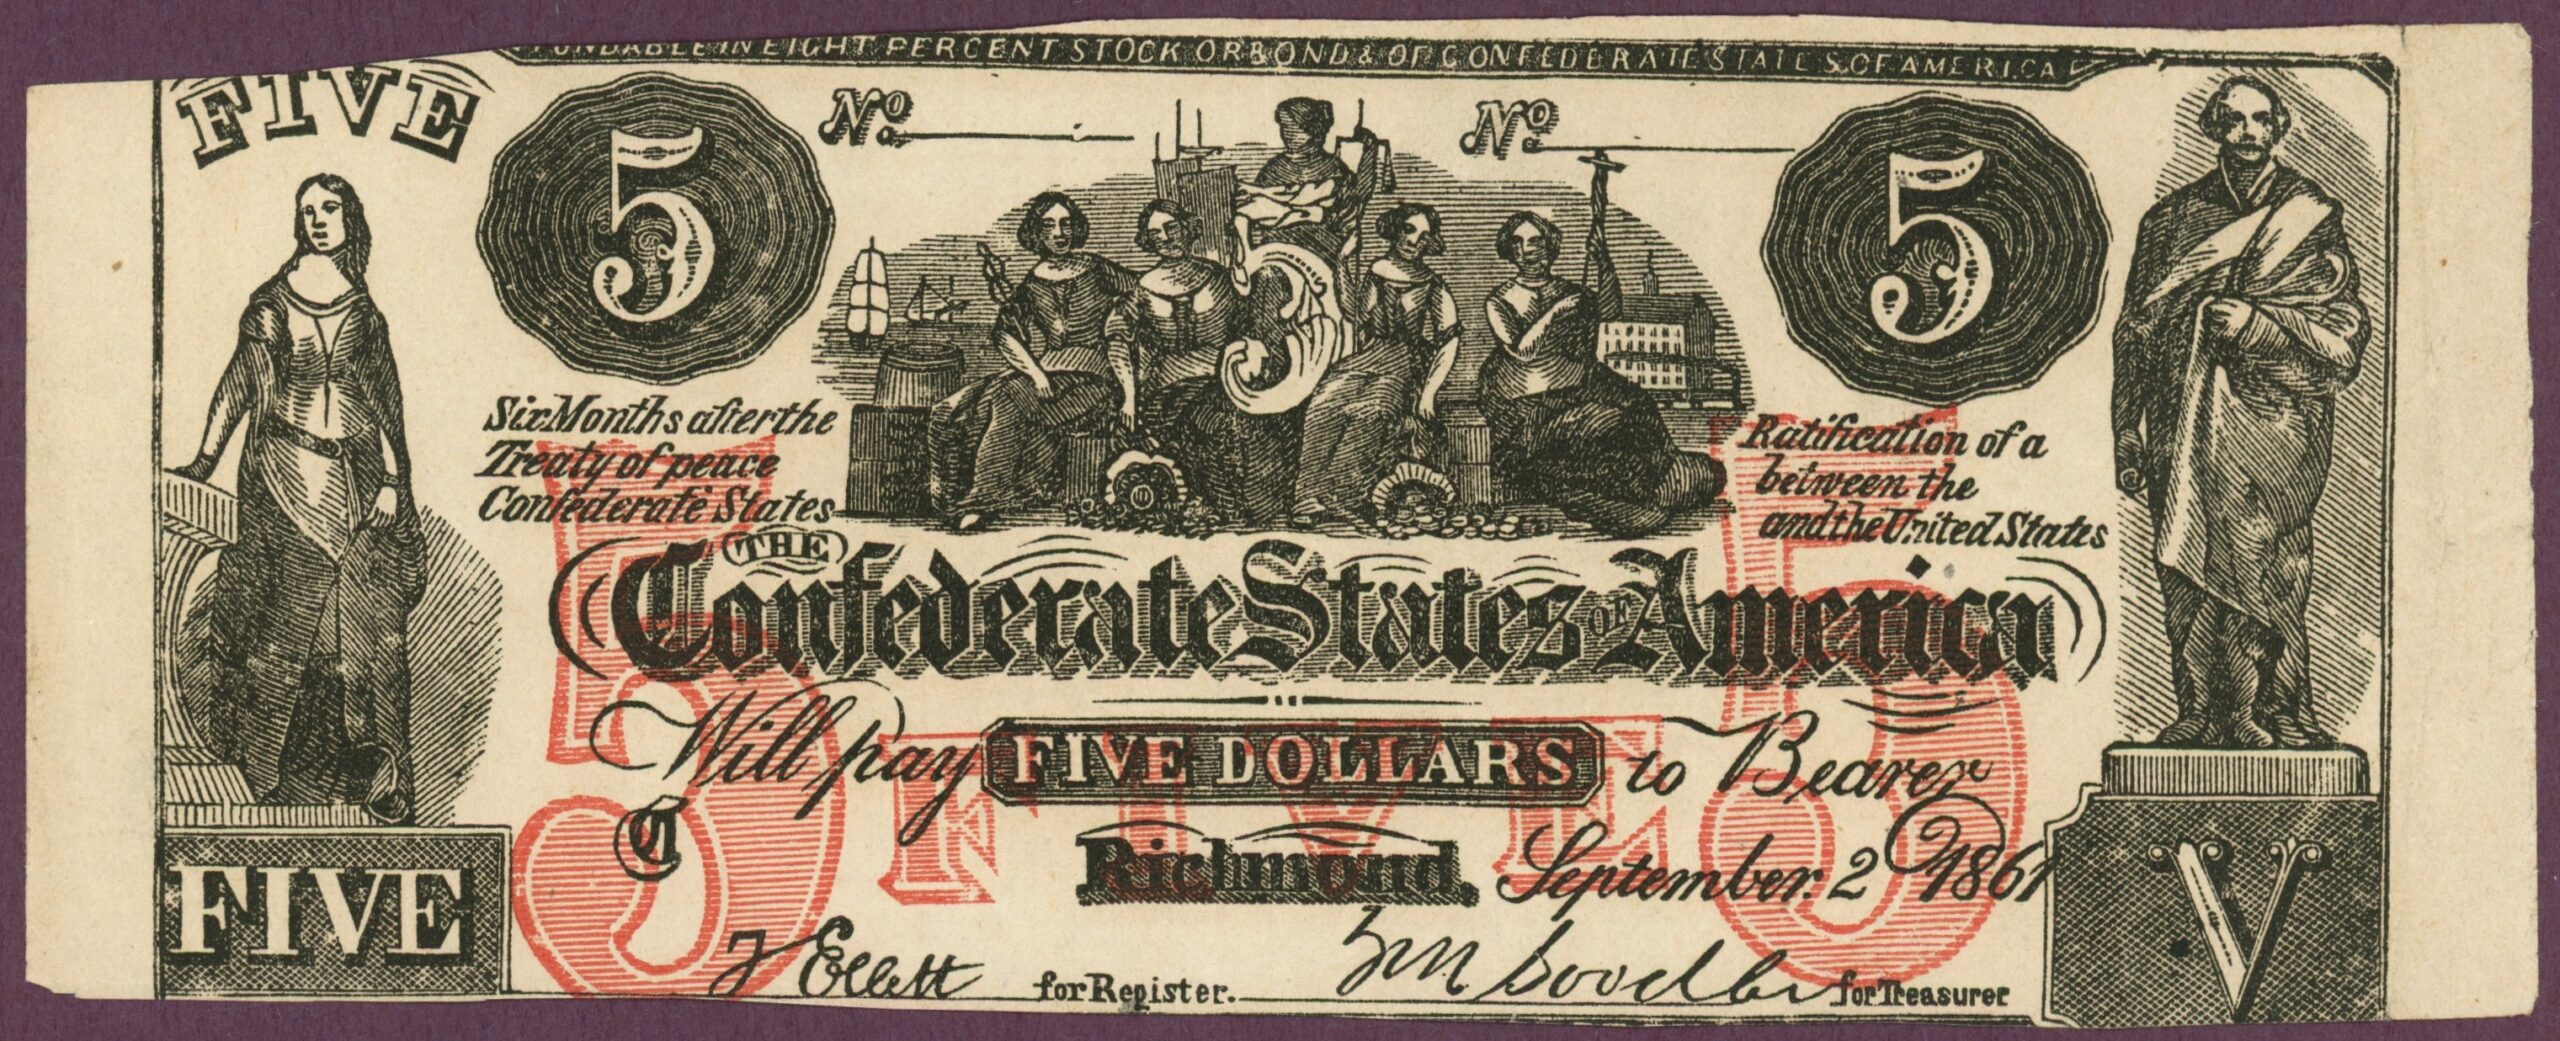 FUNDABLE IN EIGHT PERCENT STOCK OR BONDS OF CONFEDERATE STATES OF AMERICA
FIVE
5
No.
No.
5
5
Six Months after the
Treaty of peace
Confederate States
Ratification of a
between the
and the United States
THE
Confederate States OF America
5
5
Will pay FIVE DOLLARS to Bearer
FIVE
C
Richmond, September. 2 1861
FIVE
V
J Ellett for Register.
for Treasurer